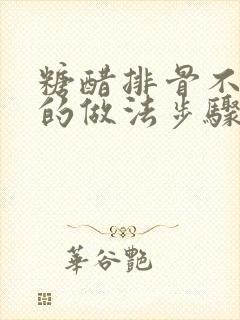 糖醋排骨不
的做法步驟
華谷艷